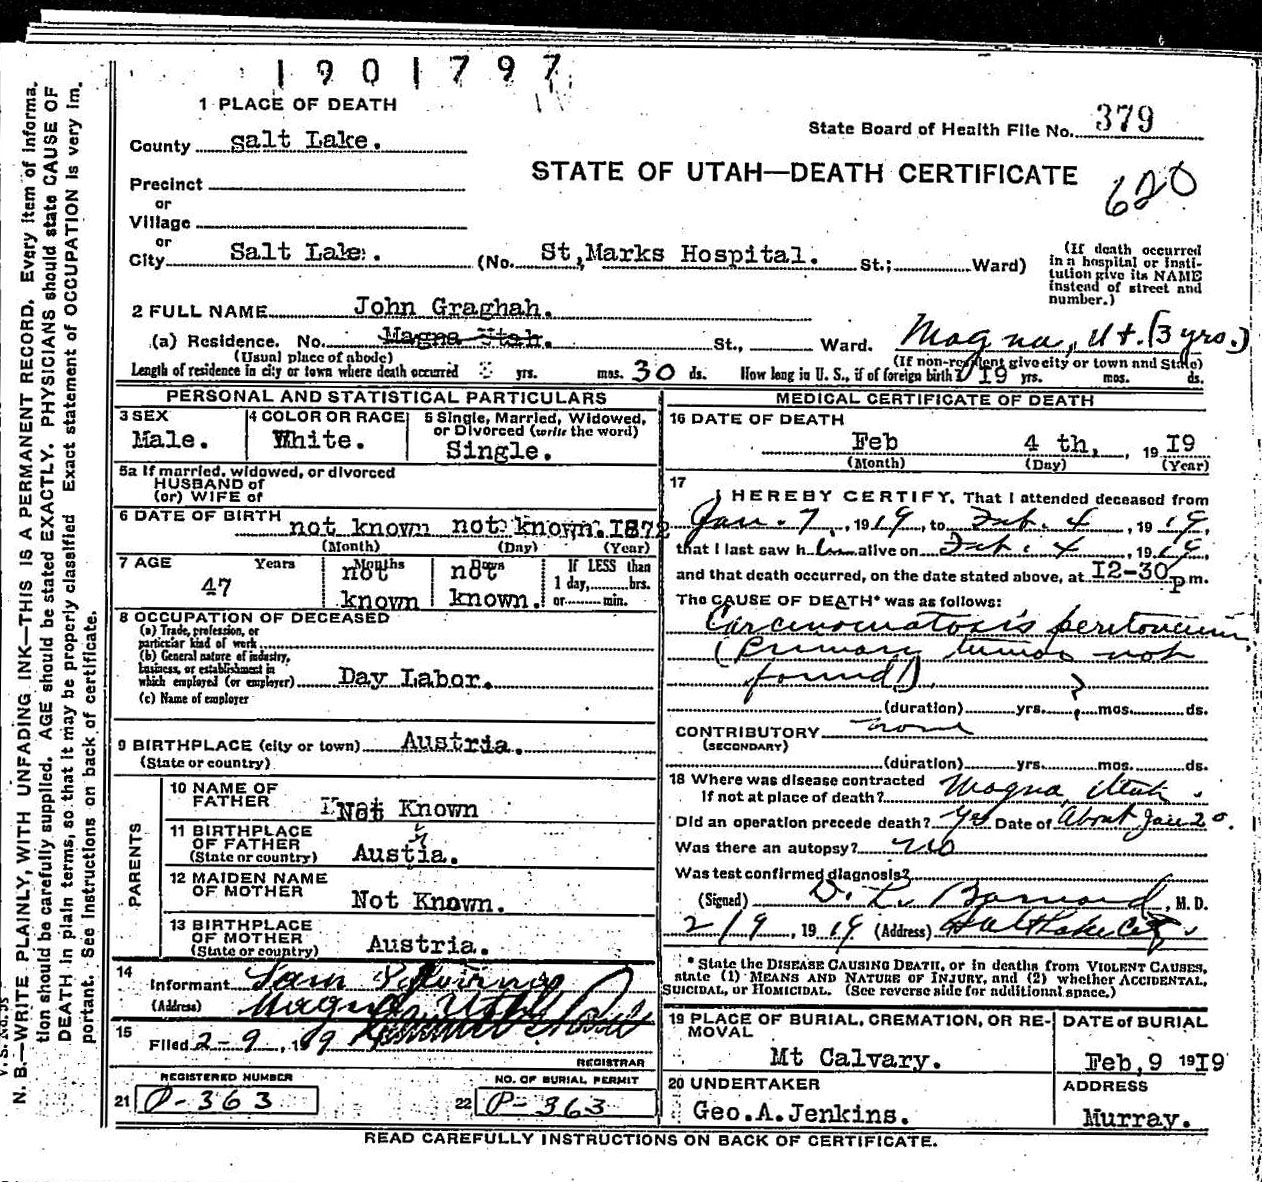 1901797
1 PLACE OF DEATH
County salt Lake.
State Board of Health File No. 379
STATE OF UTAH—DEATH CERTIFICATE
620
Precinct
or
Village
or
City Salt Lake. (No. St, Marks Hospital. St.; Ward)
(If death occurred
in a hospital or insti-
tution give its NAME
instead of street and
number.)
2 FULL NAME John Graghah.
(a) Residence. No. Magna Utah. St., Ward. Magna, Ut. (3 yrs.)
(Usual place of abode) (If non-resident give city or town and State)
Length of residence in city or town where death occurred yrs. mos. 30 ds. How long in U. S., if of foreign birth? 19 yrs. mos. ds.
PERSONAL AND STATISTICAL PARTICULARS
3 SEX
Male.
4 COLOR OR RACE
White.
5 Single, Married, Widowed,
or Divorced (write the word)
Single.
5a If married, widowed, or divorced
HUSBAND of
(or) WIFE of
6 DATE OF BIRTH
not known not known. 1872
(Month) (Day) (Year)
7 AGE Years Months Days
47 not known not known.
If LESS than
1 day, hrs.
or min.
8 OCCUPATION OF DECEASED
(a) Trade, profession, or
particular kind of work
(b) General nature of industry,
business, or establishment in
which employed (or employer) Day Labor.
(c) Name of employer
9 BIRTHPLACE (city or town) Austria.
(State or country)
PARENTS
10 NAME OF
FATHER Not Known
11 BIRTHPLACE
OF FATHER
(State or country) Austia.
12 MAIDEN NAME
OF MOTHER Not Known.
13 BIRTHPLACE
OF MOTHER
(State or country) Austria.
14
Informant Sam
(Address) Magna Utah
15
Filed 2-9, 19
REGISTRAR
REGISTERED NUMBER
21 P-363
NO. OF BURIAL PERMIT
22 P-363
MEDICAL CERTIFICATE OF DEATH
16 DATE OF DEATH
Feb 4 th, 19 19
(Month) (Day) (Year)
17
I HEREBY CERTIFY, That I attended deceased from
Jan. 7, 1919, to Feb. 4, 1919,
that I last saw him alive on Feb. 4, 1919,
and that death occurred, on the date stated above, at 12-30 p m.
The CAUSE OF DEATH* was as follows:
Carcinomatosis peritoneum
(Primary tumor not
found)
(duration) yrs. ? mos. ds.
CONTRIBUTORY none
(SECONDARY)
(duration) yrs. mos. ds.
18 Where was disease contracted
If not at place of death? Magna Utah.
Did an operation precede death? Yes Date of About Jan 20.
Was there an autopsy? no
Was test confirmed diagnosis?
(Signed) D. L. Barnard, M. D.
2/9, 1919 (Address) Salt Lake City.
* State the DISEASE CAUSING DEATH, or in deaths from VIOLENT CAUSES,
state (1) MEANS AND NATURE OF INJURY, and (2) whether ACCIDENTAL,
SUICIDAL, or HOMICIDAL. (See reverse side for additional space.)
19 PLACE OF BURIAL, CREMATION, OR RE-
MOVAL
Mt Calvary.
DATE of BURIAL
Feb, 9 1919
20 UNDERTAKER
Geo. A. Jenkins.
ADDRESS
Murray.
READ CAREFULLY INSTRUCTIONS ON BACK OF CERTIFICATE.
N. B.—WRITE PLAINLY, WITH UNFADING INK—THIS IS A PERMANENT RECORD. Every item of informa-
tion should be carefully supplied. AGE should be stated EXACTLY. PHYSICIANS should state CAUSE OF
DEATH in plain terms, so that it may be properly classified Exact statement of OCCUPATION is very im-
portant. See instructions on back of certificate.